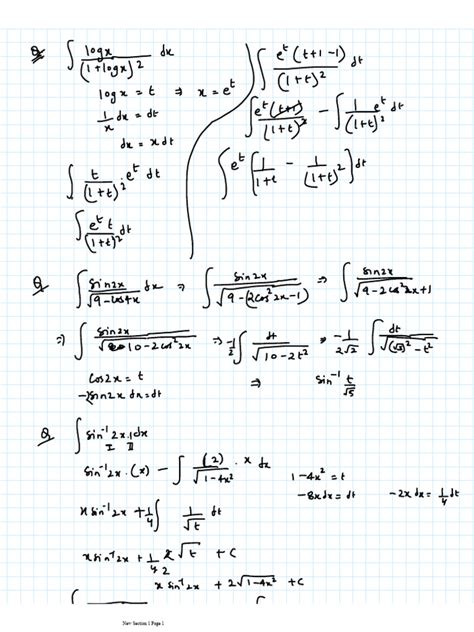 Q ∫ logx / (1+logx)² dx
logx = t ⇒ x = e^t
1/x dx = dt
dx = x dt
∫ t / (1+t)² . e^t dt
∫ e^t t / (1+t)² dt
∫ e^t (t+1-1) / (1+t)² dt
∫ e^t (t+1) / (1+t)² - ∫ 1 e^t / (1+t)² dt
∫ e^t [ 1 / (1+t) - 1 / (1+t)² ] dt
Q ∫ sin2x / √(9-cos4x) dx ⇒ ∫ sin2x / √(9-(2cos²2x-1)) ⇒ ∫ sin2x / √(9-2cos²2x+1)
⇒ ∫ sin2x / √(10-2cos²2x) ⇒ -1/2 ∫ dt / √(10-2t²) ⇒ -1/(2√2) ∫ dt / √((√5)²-t²)
cos2x = t ⇒ sin⁻¹ t/√5
-2sin2x dx = dt
Q ∫ sin⁻¹2x.1dx
I II
sin⁻¹2x.(x) - ∫ (2) / √(1-4x²) . x dx
1-4x² = t
-8xdx = dt -2xdx = 1/4 dt
x sin⁻¹2x + 1/4 ∫ 1/√t dt
x sin⁻¹2x + 1/4 2√t + c
2
x sin⁻¹2x + 2√(1-4x²) + c
New Section 1 Page 1